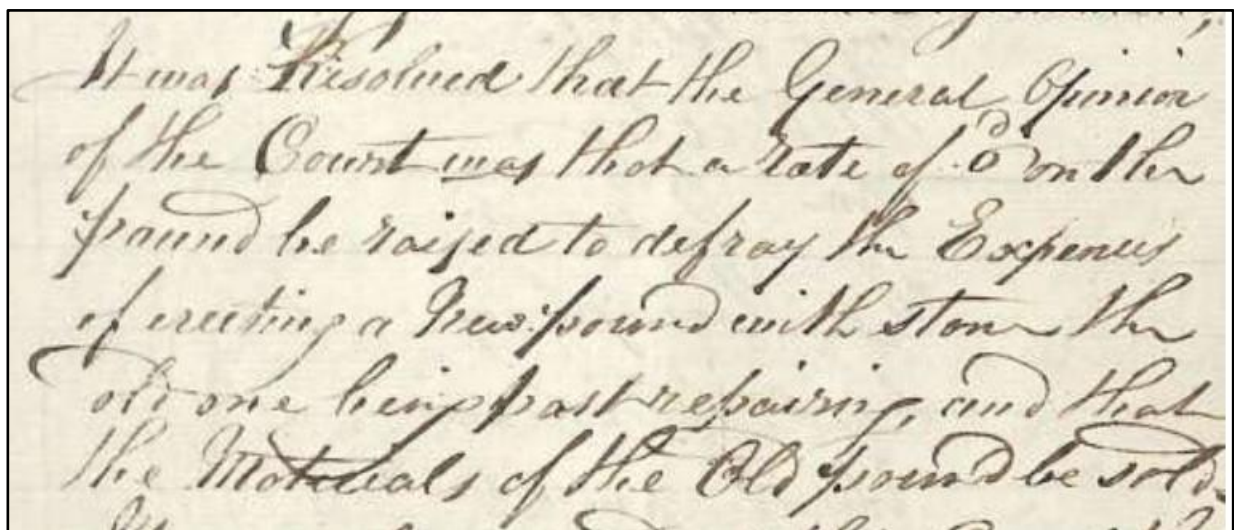 It was Resolved that the General Opinion
of the Court was that a rate of d on the
pound be raised to defray the Expences
of erecting a New pound with stone the
old one being past repairing, and that
the Materials of the Old pound be sold